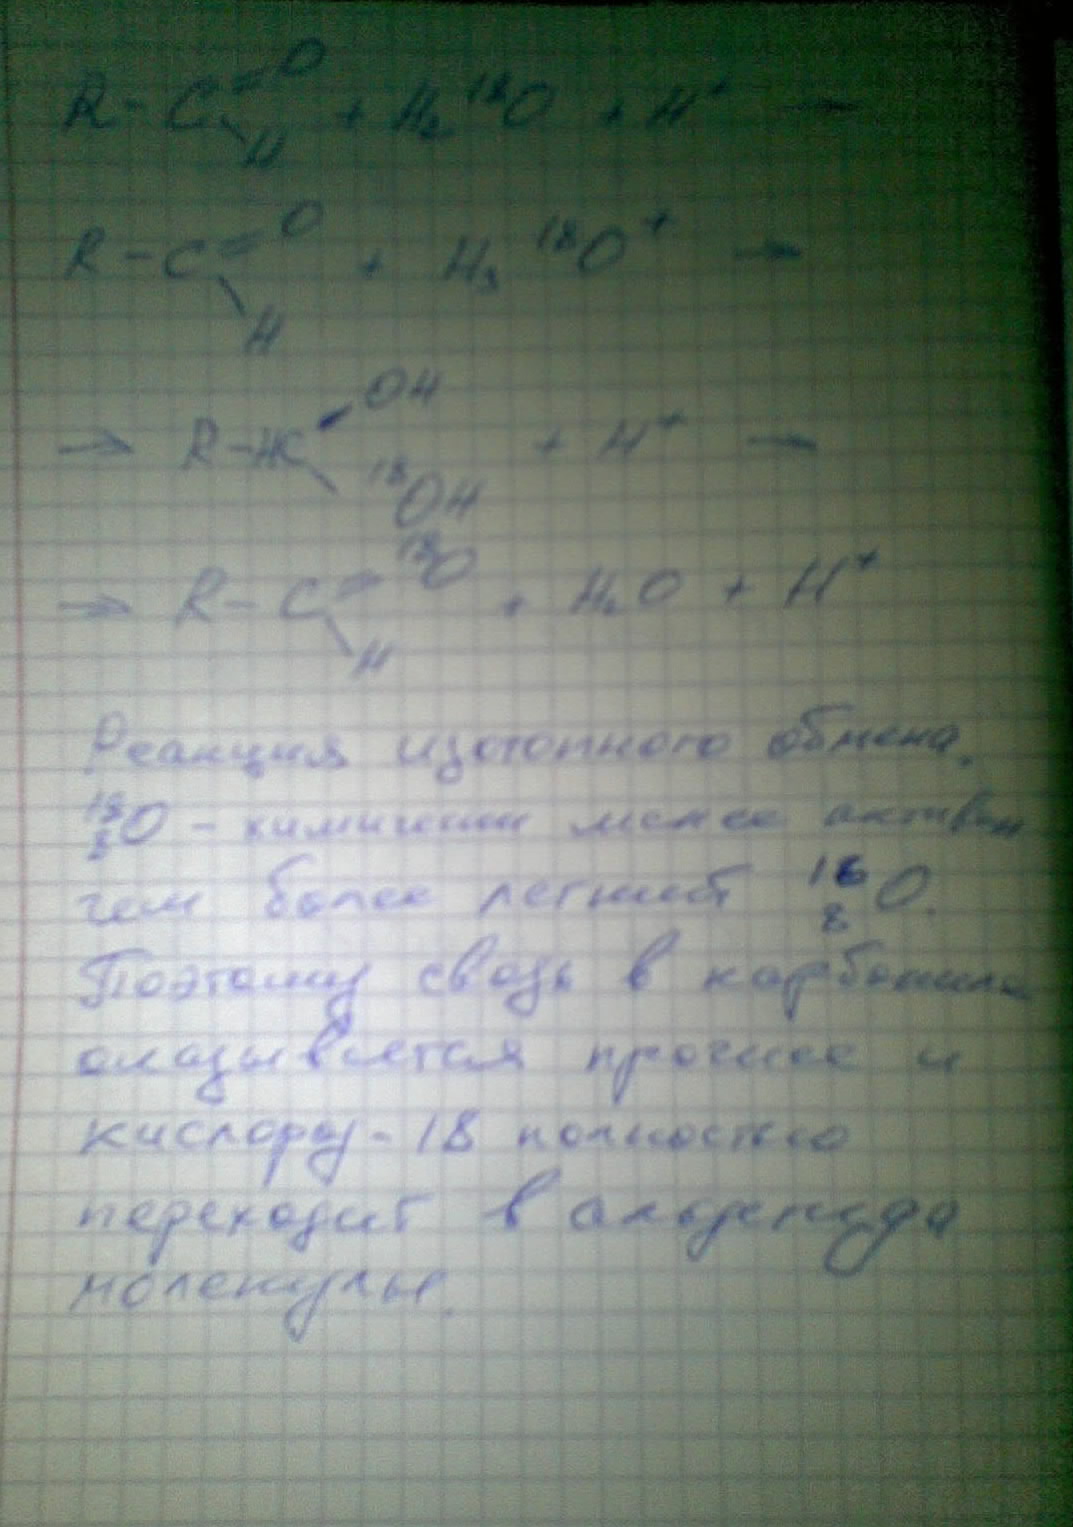 R-C=O
H + H₂¹⁸O + H⁺ →
R-C=O
H + H₃¹⁸O⁺ →
→ R-HC OH
¹⁸OH + H⁺ →
→ R-C=¹⁸O
H + H₂O + H⁺
Реакция изотопного обмена.
¹⁸₈O - химически менее активен
чем более легкий ¹⁶₈O.
Поэтому связь в карбониле
оказывается прочнее и
кислород-18 полностью
переходит в альдегида
молекулы.